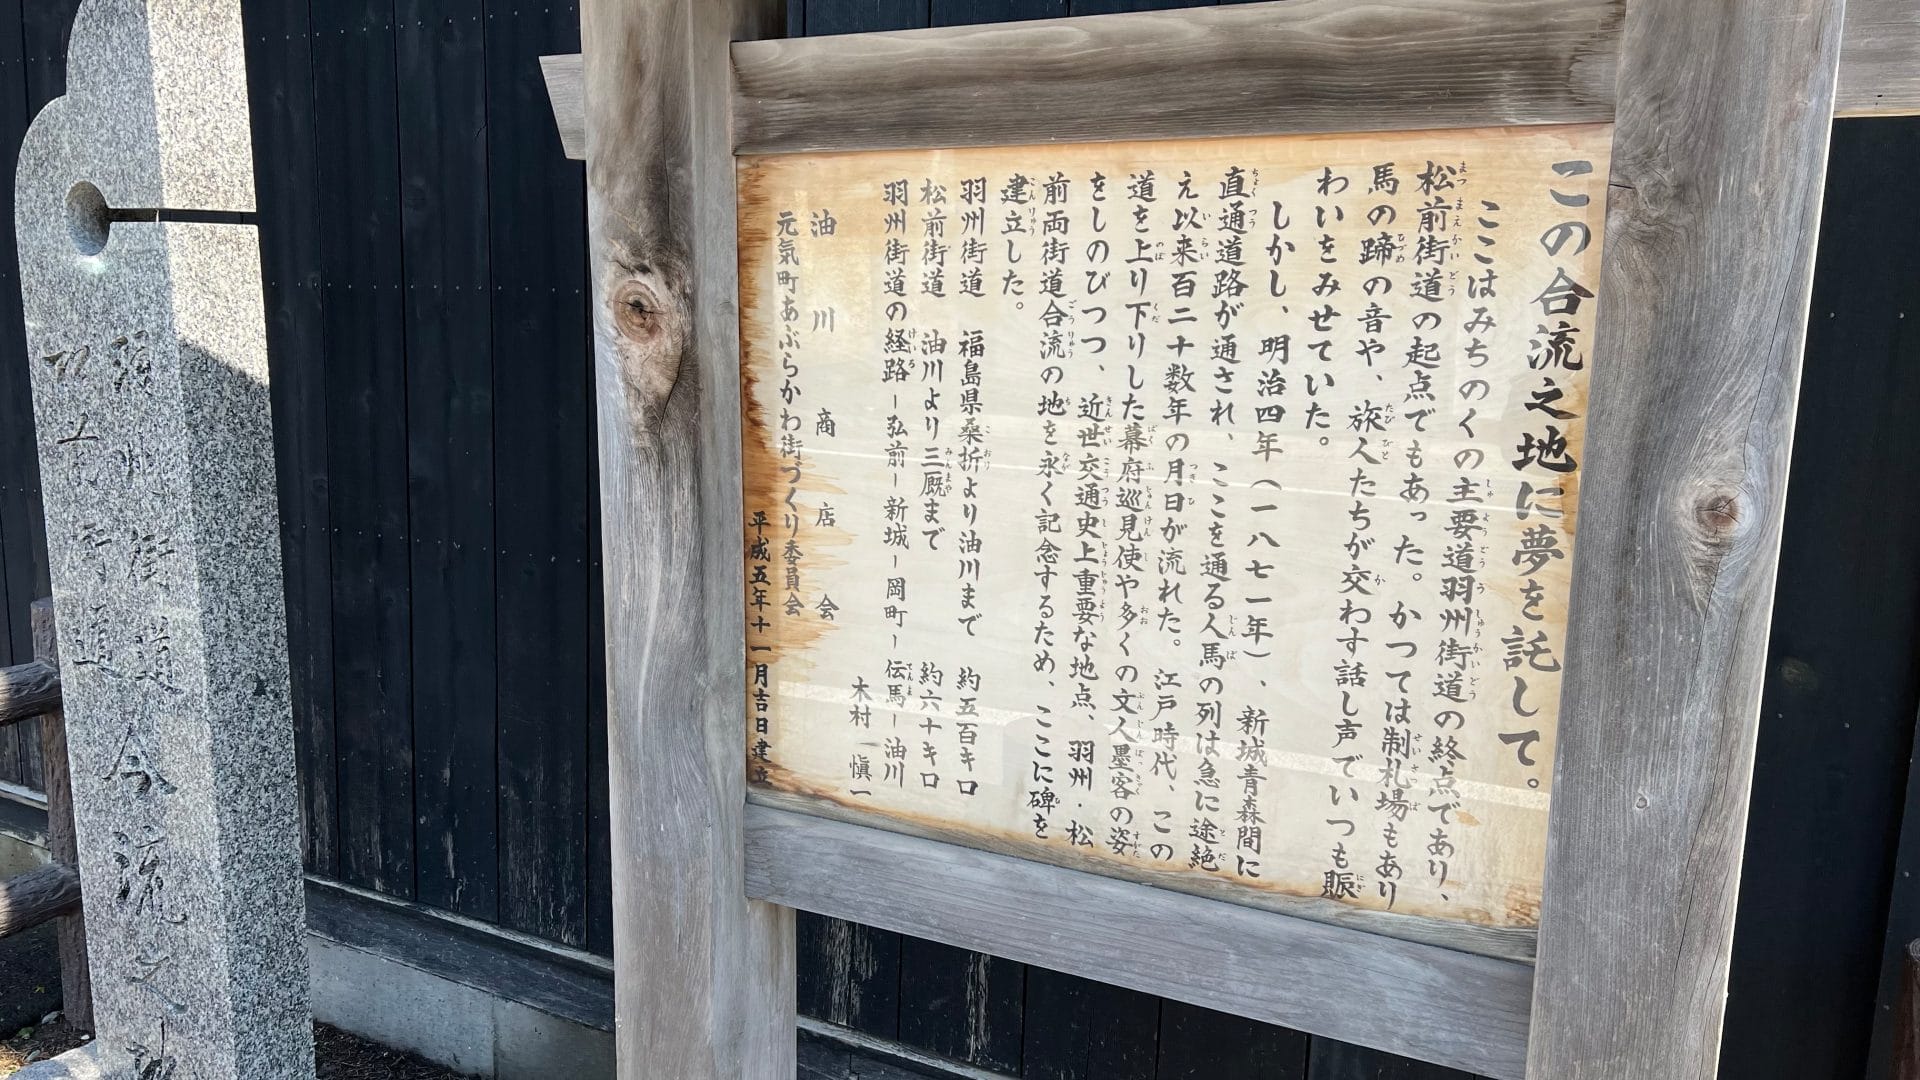 この合流之地に夢を託して。
ここはみちのくの主要道羽州街道の終点であり、
松前街道の起点でもあった。かつては制札場もあり
馬の蹄の音や、旅人たちが交わす話し声でいつも賑
わいをみせていた。
しかし、明治四年（一八七一年）、新城青森間に
直通道路が通され、ここを通る人馬の列は急に途絶
え以来百二十数年の月日が流れた。江戸時代、この
道を上り下りした幕府巡見使や多くの文人墨客の姿
をしのびつつ、近世交通史上重要な地点、羽州・松
前両街道合流の地を永く記念するため、ここに碑を
建立した。
羽州街道 福島県桑折より油川まで 約五百キロ
松前街道 油川より三厩まで 約六十キロ
羽州街道の経路－弘前－新城－岡町－伝馬－油川
木村 愼一
油川商店会
元気町あぶらかわ街づくり委員会
平成五年十一月吉日建立
羽州街道
松前街道
合流之地